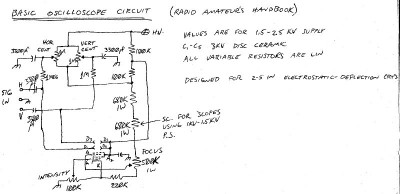 BASIC OSCILLOSCOPE CIRCUIT (RADIO AMATEUR'S HANDBOOK)
+ HV
VALUES ARE FOR 1.5-2.5 KV SUPPLY
C1-C5 3KV DISC CERAMIC
ALL VARIABLE RESISTORS ARE LIN
DESIGNED FOR 2-5 IN ELECTROSTATIC-DEFLECTION CRTS
HOR CENT
VERT CENT
3300pF
3300pF
100K
1M
1M
100K
SIG IN
H
V
680K 1W
680K 1W
SC FOR SCOPES USING 1KV-1.5KV P.S.
FOCUS
500K 1W
INTENSITY
100K
220K